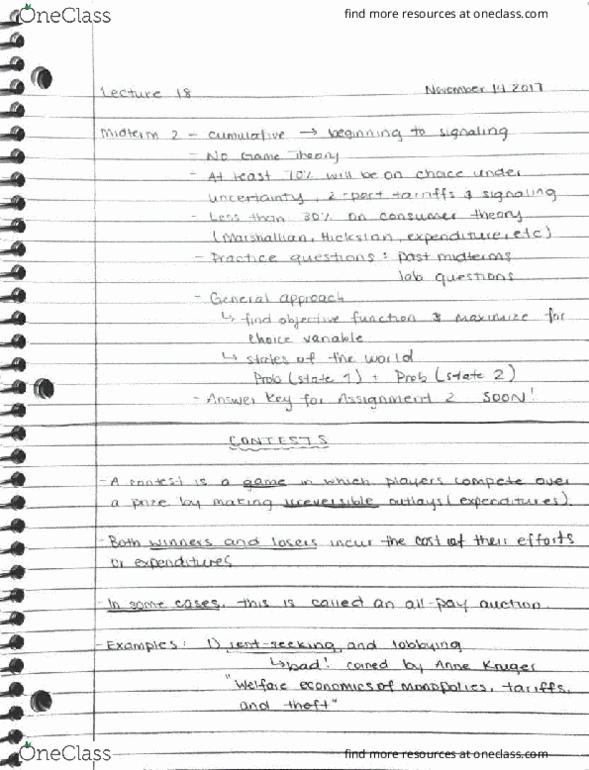 OneClass
find more resources at oneclass.com
Lecture 18 November 14 2017
Midterm 2 - cumulative → beginning to signaling
- No Game Theory
- At least 70% will be on choice under
uncertainty, 2-part tariffs & signaling
- Less than 30% on consumer theory
(Marshallian, Hicksian, expenditure, etc)
- Practice questions: past midterms
lab questions
- General approach
↳ find objective function & maximize for
choice variable
↳ states of the world
Prob (state 1) + Prob (state 2)
- Answer Key for Assignment 2 SOON!
CONTESTS
- A contest is a game in which players compete over
a prize by making irreversible outlays (expenditures).
- Both winners and losers incur the cost of their efforts
or expenditures
- In some cases, this is called an all-pay auction.
- Examples: 1) rent-seeking and lobbying
↳ bad! coined by Anne Kruger
"Welfare economics of monopolies, tariffs,
and theft"
OneClass
find more resources at oneclass.com